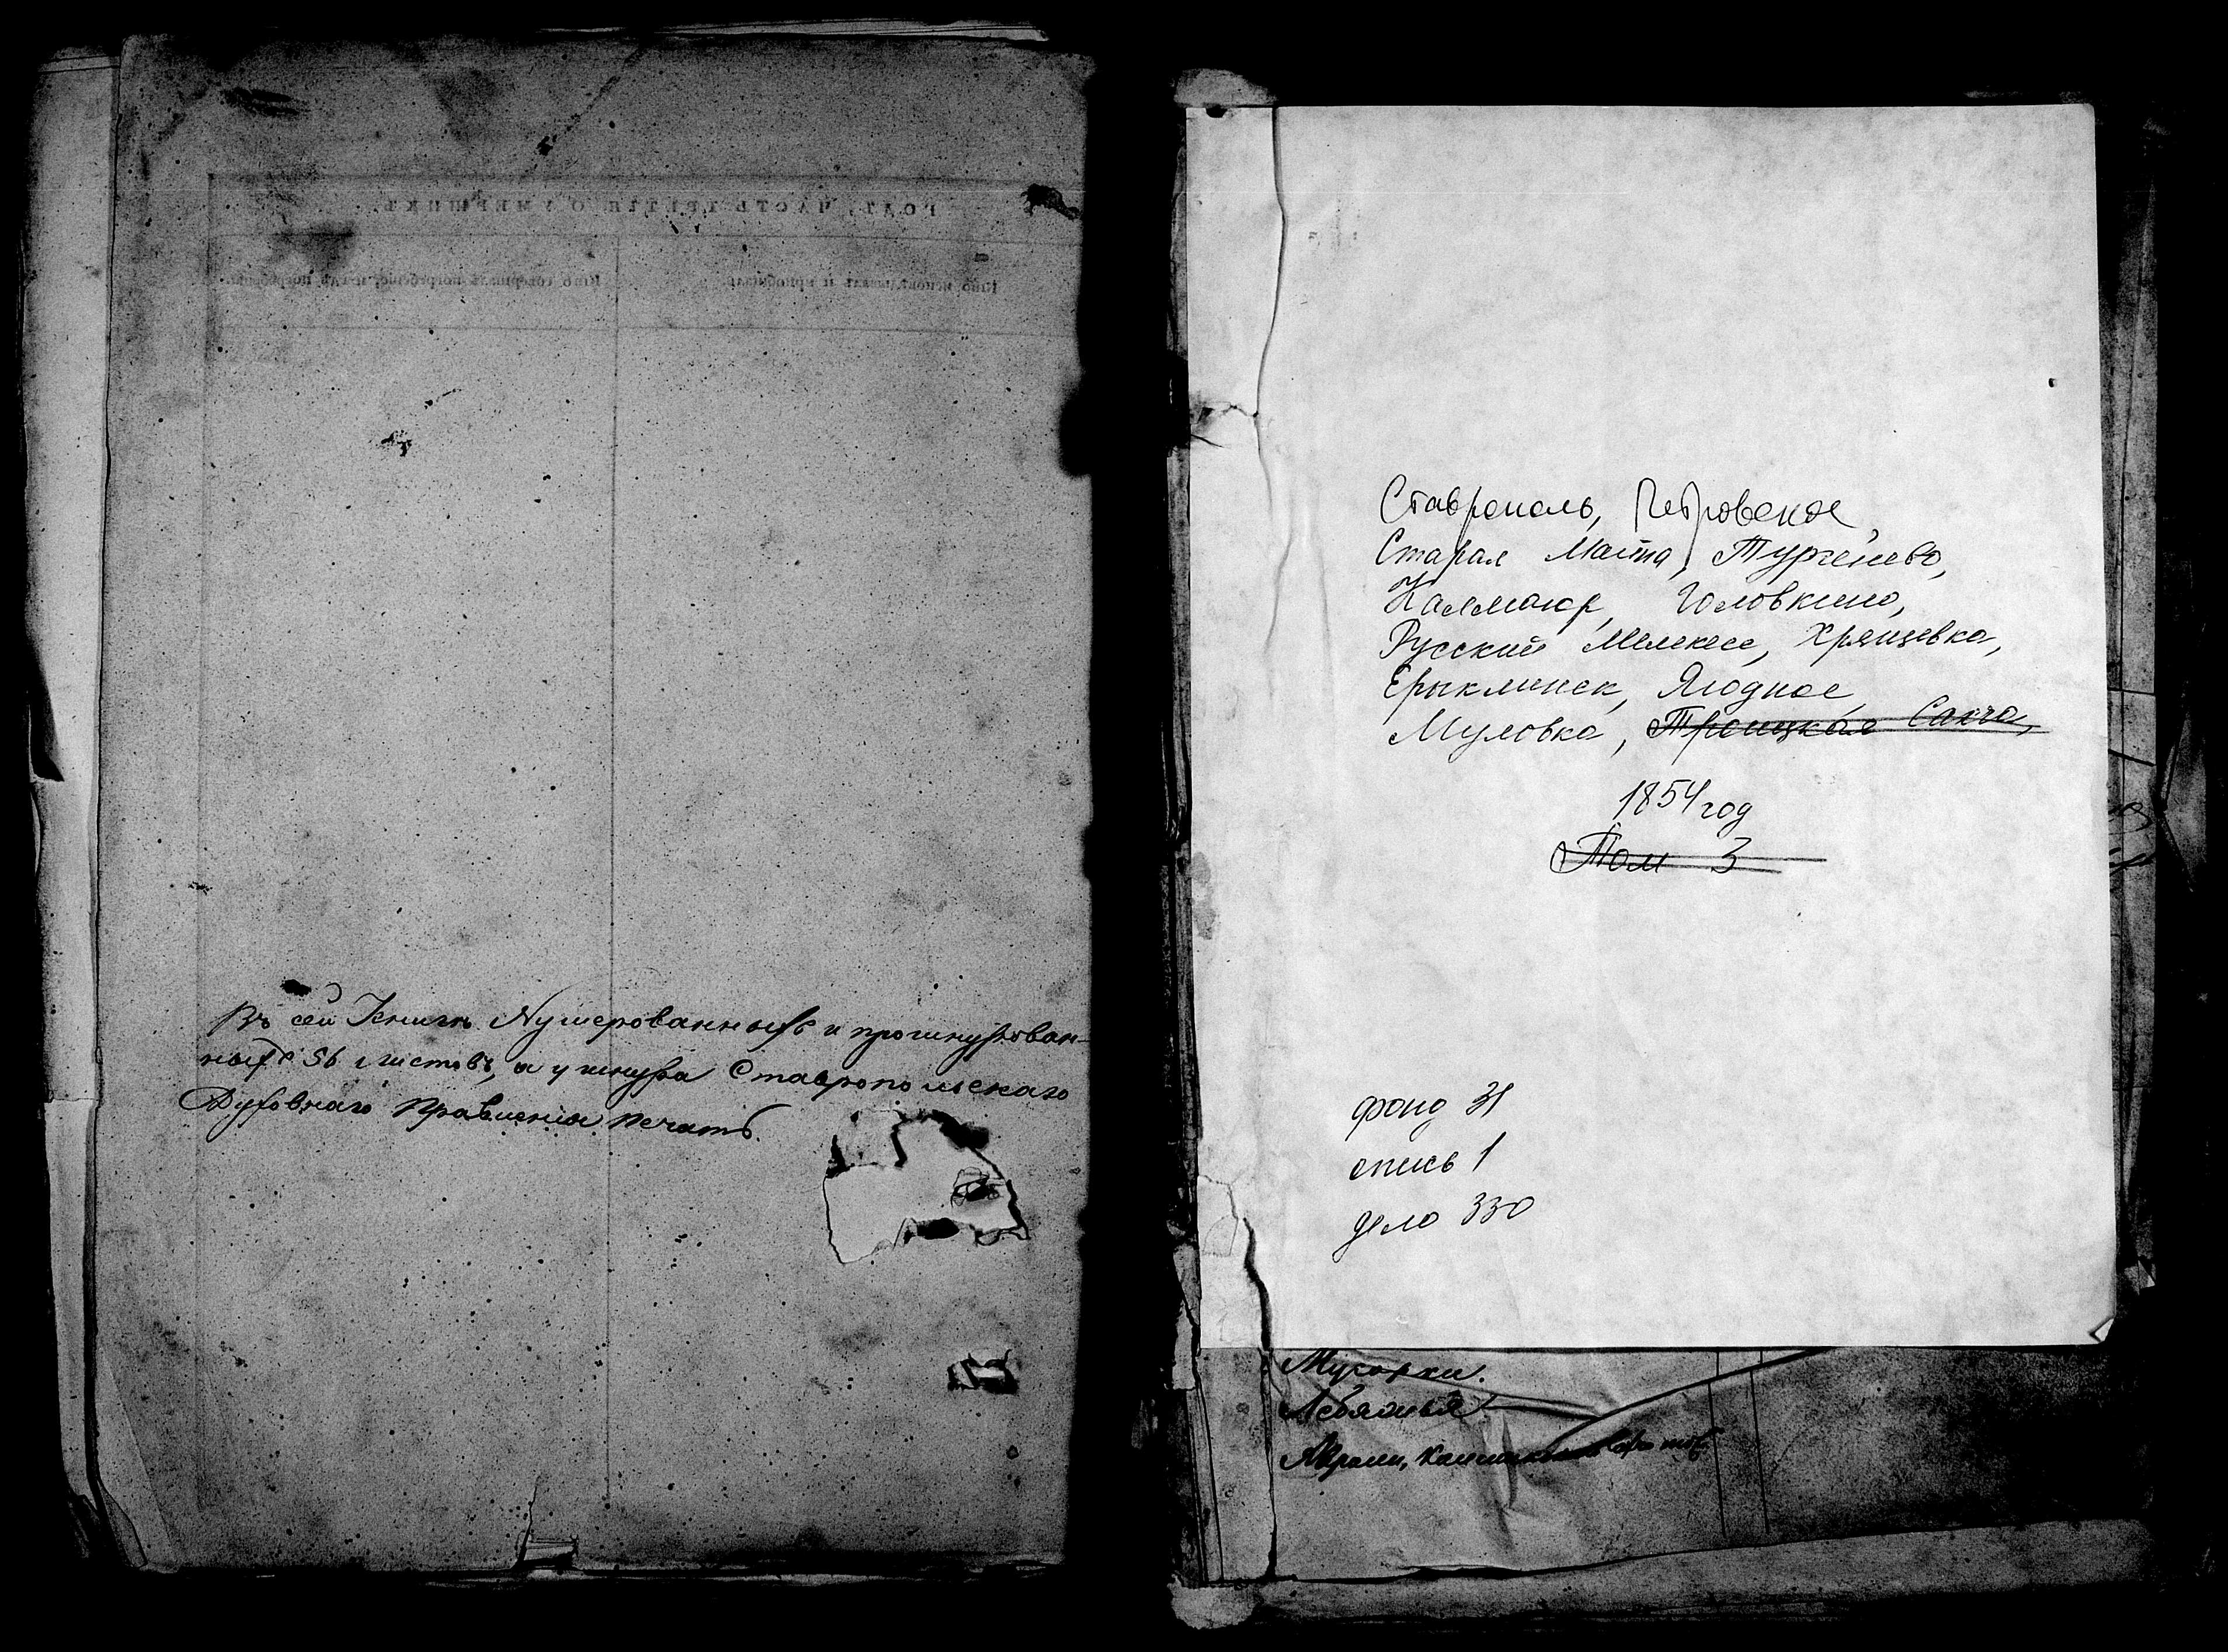 Въ сей Книгѣ Нумерованныхъ и прошнурован-
ныхъ 56 листовъ, а у шнура Ставропольскаго
Духовнаго Правленія печать.
Ставрополь, Петровское,
Старая Майна, Тургенево,
Каммаюр, Головкино,
Русский Мелекесс, Хрящевка,
Ерыклинск, Ягодное,
Муловка, Троицкая Сакча,
1854 год
Том 3
фонд 31
опись 1
дело 330
Мусорки.
Лебяжья